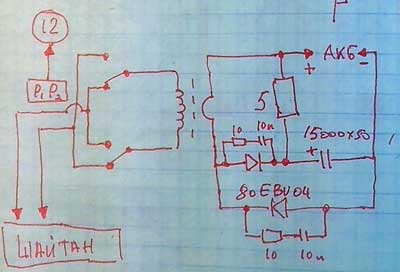 12
P₁P₂
АКБ
+ -
5
10 10n
15000x50
+
80EBU04
10 10n
ШАЙТАН